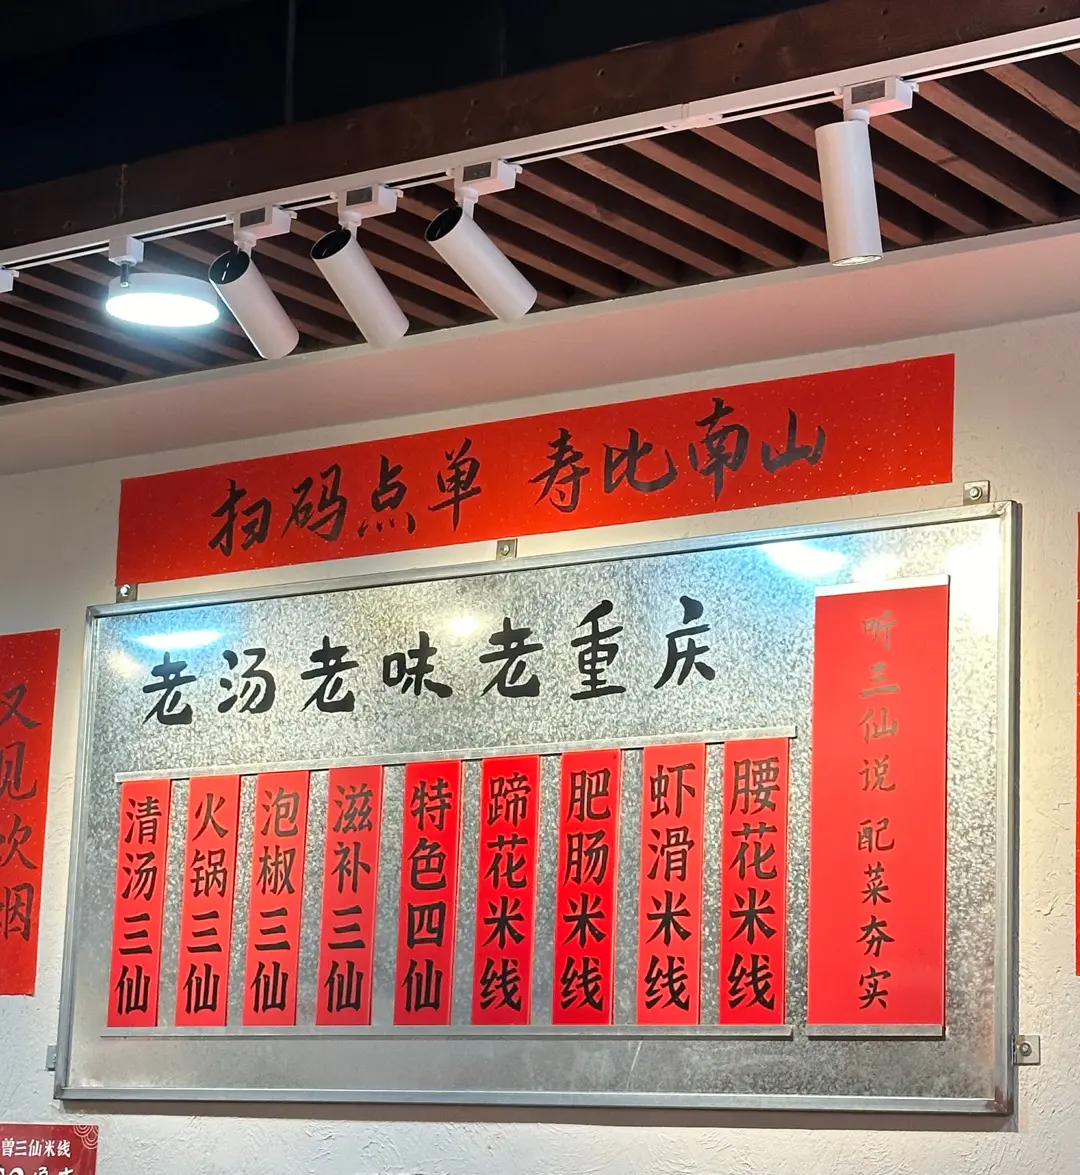 扫码点单 寿比南山
老汤老味老重庆
清汤三仙
火锅三仙
泡椒三仙
滋补三仙
特色四仙
蹄花米线
肥肠米线
虾滑米线
腰花米线
听三仙说 配菜夯实
又见炊烟
曾三仙米线